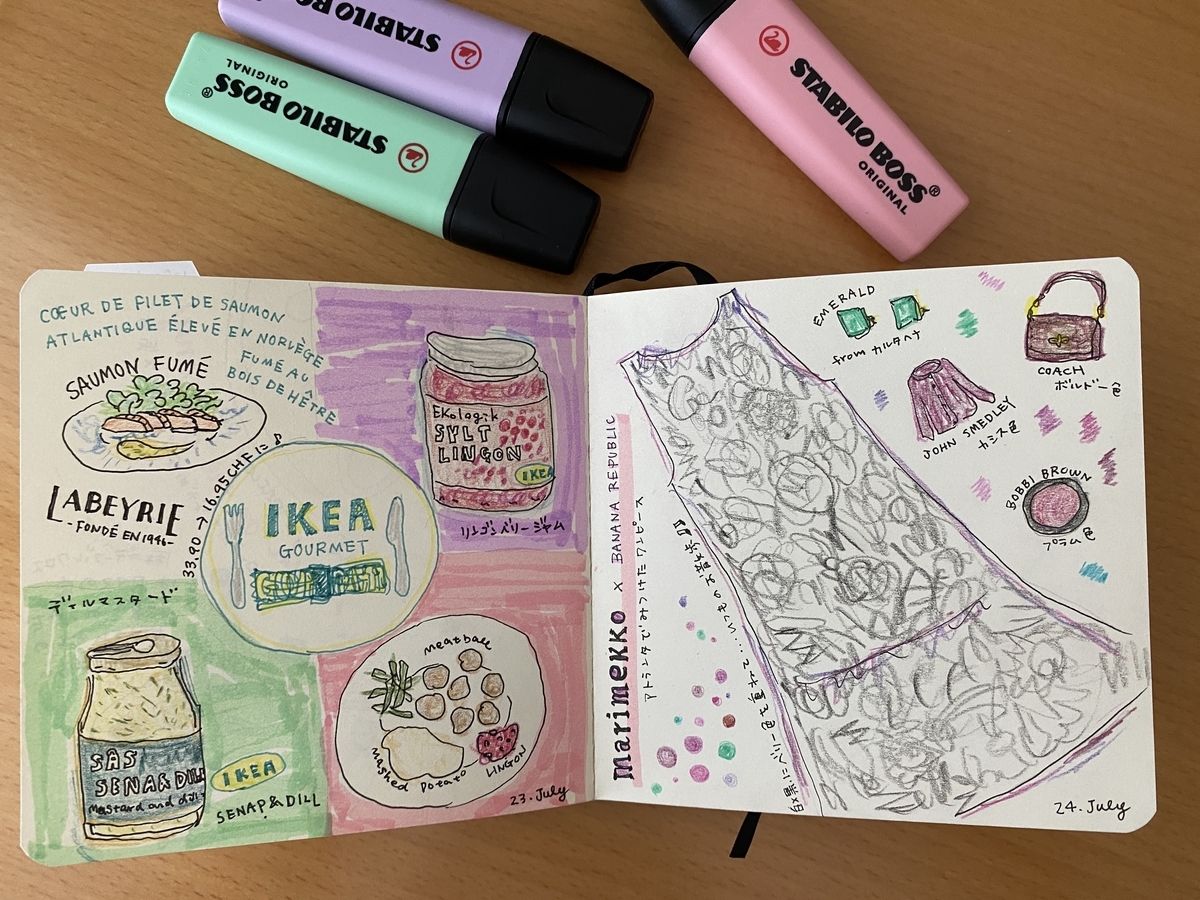 STABILO BOSS
STABILO BOSS®
ORIGINAL
STABILO BOSS®
ORIGINAL
CŒUR DE FILET DE SAUMON
ATLANTIQUE ÉLEVÉ EN NORVÈGE
FUMÉ AU
BOIS DE HÊTRE
SAUMON FUMÉ
LABEYRIE
-FONDÉ EN 1946-
33.90 → 16.95CHFに♪
IKEA
GOURMET
Ekologik
SYLT
LINGON
IKEA
リンゴンベリージャム
ディルマスタード
SÅS
SENAP & DILL
Mustard and dill
IKEA
SENAP & DILL
meatball
mashed potato
LINGON
23.July
marimekko × BANANA REPUBLIC
アトランタでみつけたワンピース
夕陽にベリー色を重ねて…いつものお散歩
EMERALD
from カルタヘナ
COACH
ボルドー色
JOHN SMEDLEY
カシス色
BOBBI BROWN
プラム色
24.July